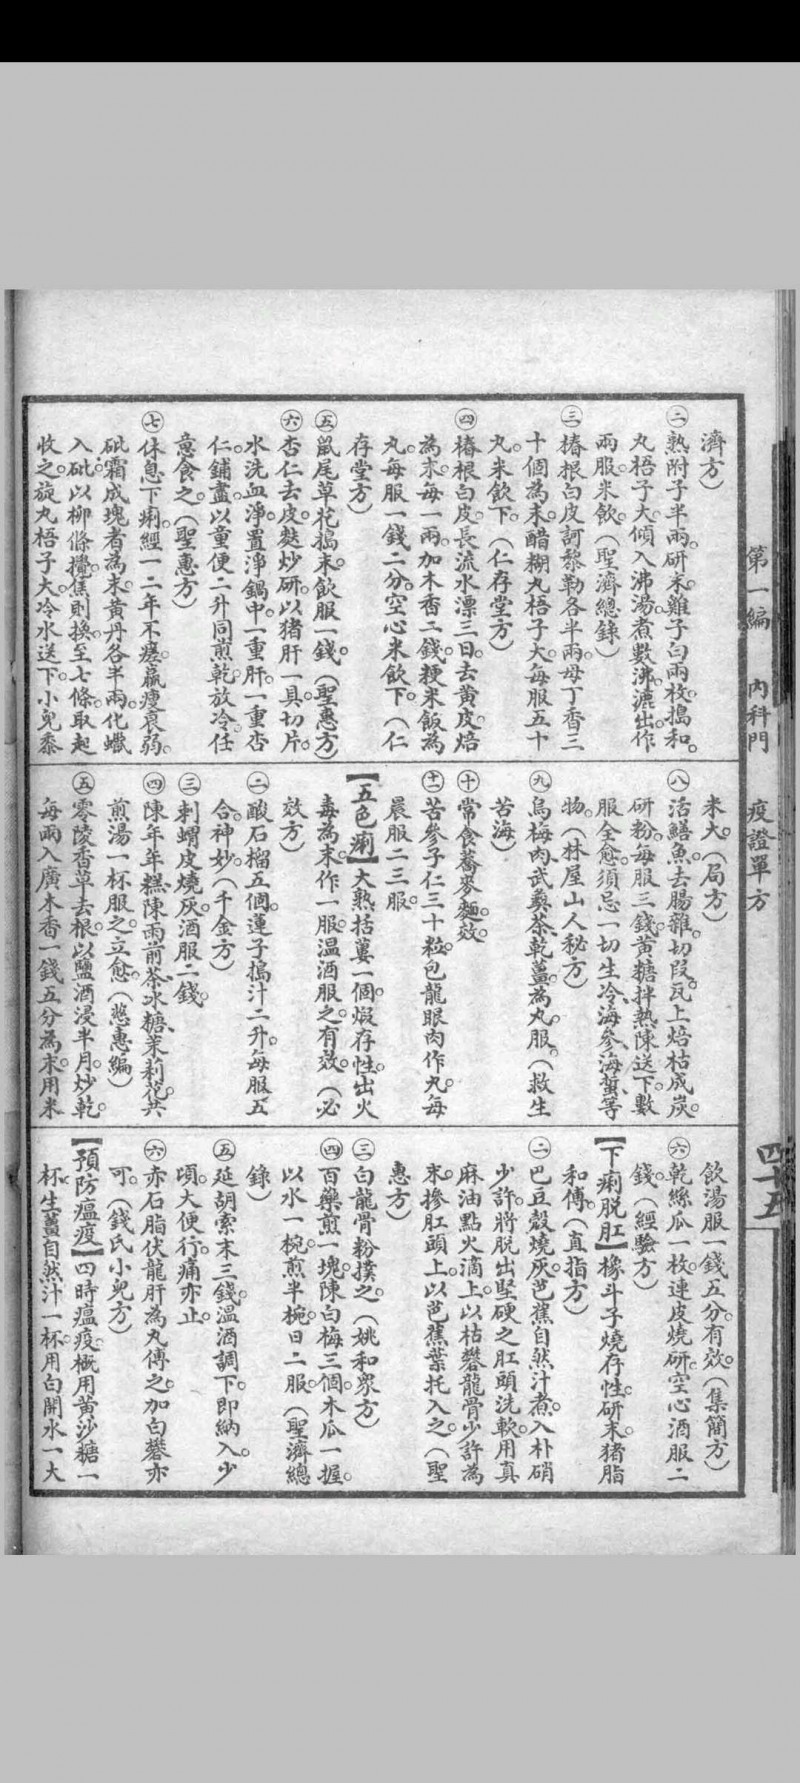 第一編 內科門 疫證單方 四十五
濟方）
㊁熟附子半兩。研末。雞子白兩枚。搗和。
丸梧子大。傾入沸湯煮數沸。漉出。作
兩服。米飲。（聖濟總錄）
㊂椿根白皮。訶黎勒各半兩。母丁香三
十個。為末。醋糊丸梧子大。每服五十
丸。米飲下。（仁存堂方）
㊃椿根白皮。長流水漂三日。去黃皮。焙
為末。每一兩。加木香二錢。粳米飯為
丸。每服一錢二分。空心米飲下。（仁
存堂方）
㊄鼠尾草花搗末。飲服一錢。（聖惠方）
㊅杏仁去皮。麩炒研。以猪肝一具。切片。
水洗血淨。置淨鍋中。一重肝。一重杏
仁。鋪盡。以童便二升同煎乾。放冷。任
意食之。（聖惠方）
㊆休息下痢。經一二年不瘥。羸瘦衰弱。
砒霜成塊者為末。黃丹各半兩。化蠟
入砒。以柳條攪。焦則換。至七條。取起
收之。旋丸梧子大。冷水送下。小兒黍
米大。（局方）
㊇活鱔魚。去腸雜。切段。瓦上焙枯成炭。
研粉。每服三錢。黃糖拌。熱陳送下。數
服全愈。須忌一切生冷、海參、海蜇等
物。（林屋山人秘方）
㊈烏梅肉、武彝茶、乾薑。為丸服。（救生
苦海）
㊉常食蕎麥麵。效。
（十一）苦參子仁三十粒。包龍眼肉作丸。每
晨服二三服。
【五色痢】大熟括蔞一個。煅存性。出火
毒。為末。作一服。温酒服之。有效。（必
效方）
㊁酸石榴五個。蓮子搗汁二升。每服五
合。神妙。（千金方）
㊂刺蝟皮燒灰。酒服二錢。
㊃陳年年糕、陳雨前茶、冰糖、茉莉花。共
煎湯一杯服之。立愈。（慈惠編）
㊄零陵香草去根。以鹽酒浸半月。炒乾。
每兩入廣木香一錢五分。為末。用米
飲湯服一錢五分。有效。（集簡方）
㊅乾絲瓜一枚。連皮燒研。空心酒服二
錢。（經驗方）
【下痢脫肛】橡斗子燒存性。研末。猪脂
和傅。（直指方）
㊁巴豆殼燒灰。芭蕉自然汁煮。入朴硝
少許。將脫出堅硬之肛頭洗軟。用真
麻油點火滴上。以枯礬龍骨少許為
末。摻肛頭上。以芭蕉葉托入之。（聖
惠方）
㊂白龍骨粉撲之。（姚和眾方）
㊃百藥煎一塊。陳白梅三個。木瓜一握。
以水一椀。煎半椀。日二服。（聖濟總
錄）
㊄延胡索末三錢。温酒調下。即納入。少
頃。大便行。痛亦止。
㊅赤石脂伏龍肝為丸傅之。加白礬亦
可。（錢氏小兒方）
【預防瘟疫】四時瘟疫。概用黃沙糖一
杯。生薑自然汁一杯。用白開水一大